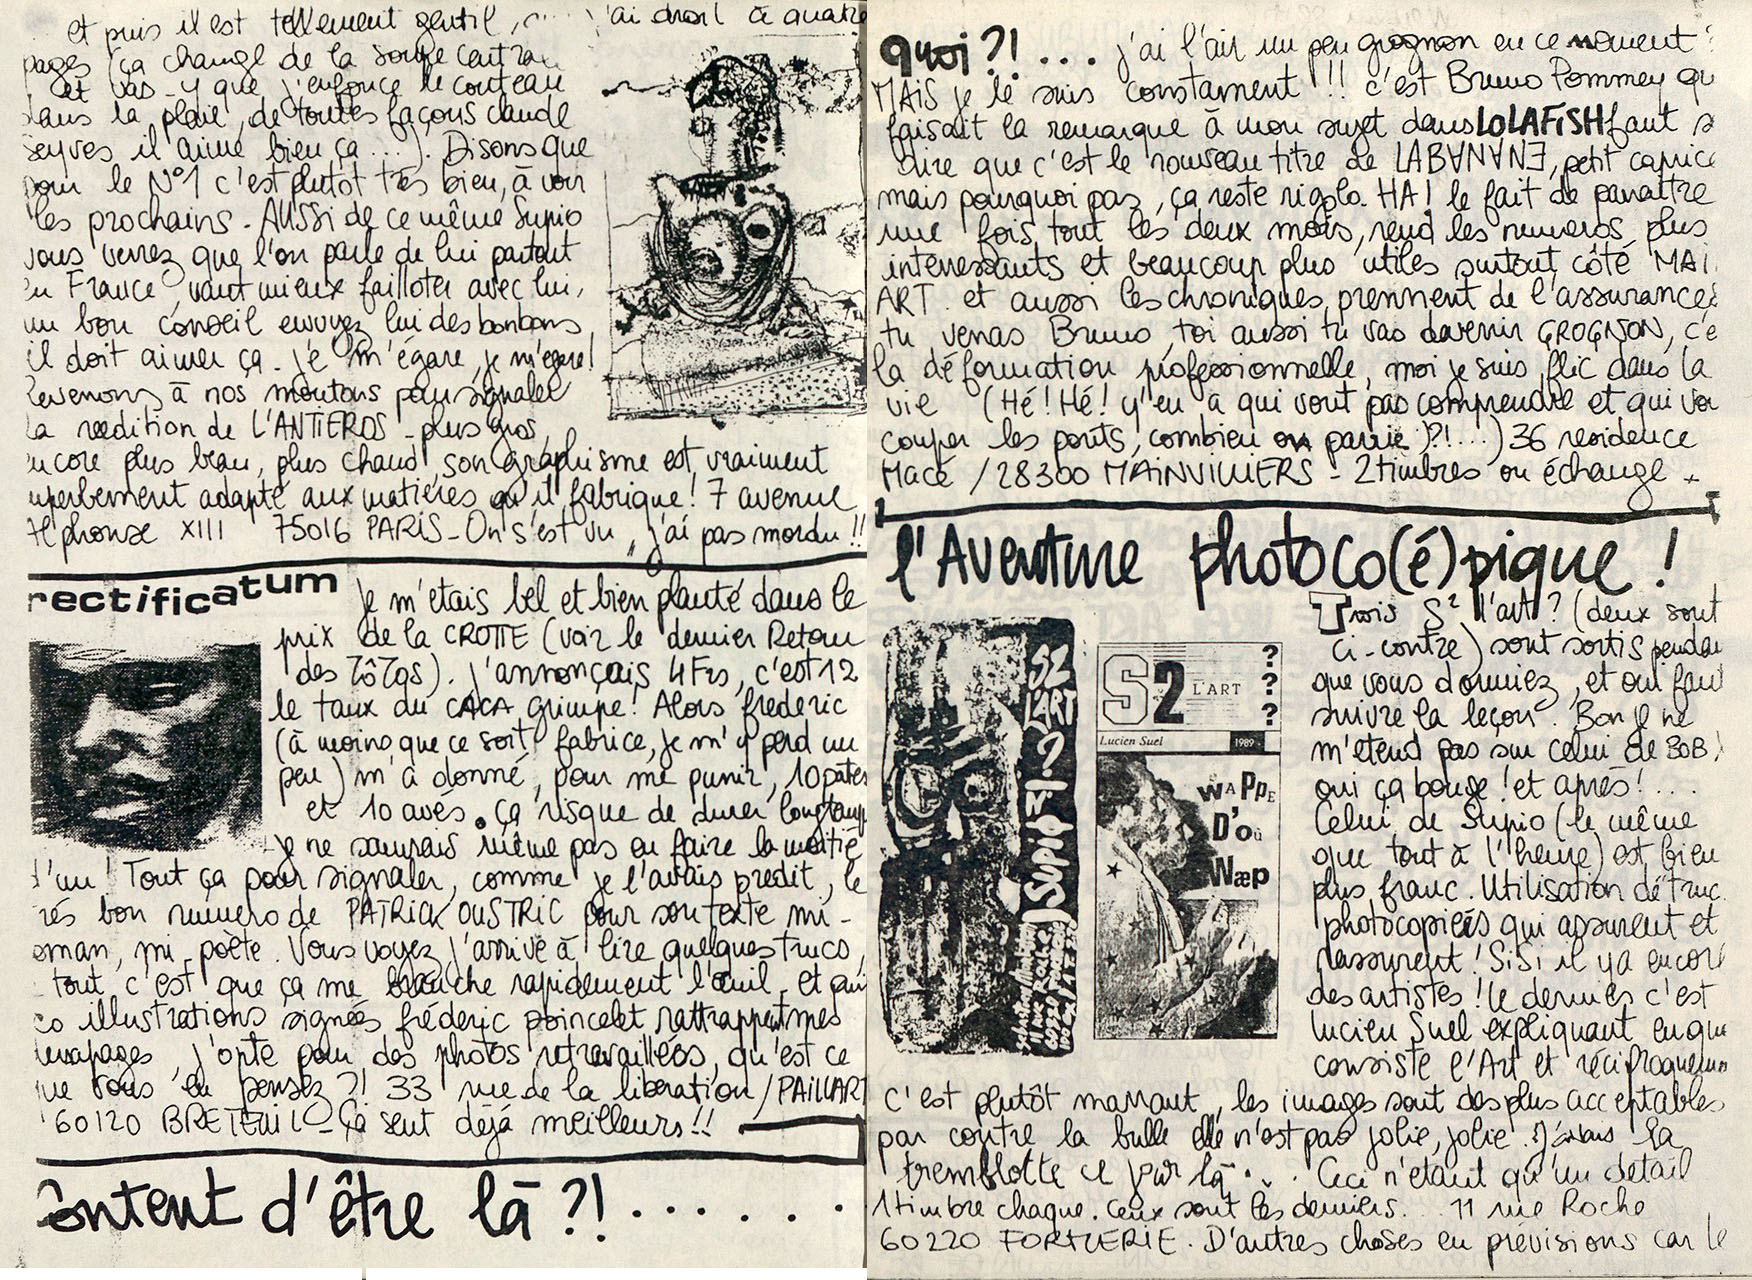 et puis il est tellement gentil, j'ai droit à quatre
pages (ça change de la soupe
et vas-y que j'enfonce le couteau
dans la plaie, de toutes façons claude
seyves il aime bien ça...). Disons que
pour le N°1 c'est plutot très bien, à voir
les prochains. AUSSI de ce même Supio
vous verrez que l'on parle de lui partout
en France, vaut mieux failloter avec lui,
un bon conseil envoyez lui des bonbons,
il doit aimer ça. je m'égare, je m'égare!
Revenons à nos moutons pour signaler
la reedition de L'ANTIEROS - plus gros,
encore plus beau, plus chaud, son graphisme est vraiment
superbement adapté aux matières qu'il fabrique! 7 avenue
Alphonse XIII 75016 PARIS - On s'est vu, j'ai pas mordu!!
rectificatum
Je m'étais bel et bien planté dans le
prix de la CROTTE (voir le dernier Retour
des TôTos). J'annonçais 4Frs, c'est 12
le taux du CACA grimpe! Alors frederic
(à moins que ce soit fabrice, je m'y perd un
peu) m'a donné, pour me punir, 10 pater
et 10 aves. ça risque de durer longtemps
je ne saurais même pas en faire la moitié
d'un! Tout ça pour signaler, comme je l'avais predit, le
très bon numero de PATRICK OUSTRIC pour son texte mi-
roman, mi poète. Vous voyez j'arrive à lire quelques trucs,
tout c'est que ça me branche rapidement l'œuil. et puis
co illustrations signées fréderic poincelet rattrappent mes
derapages, j'opte pour des photos retravaillées, qu'est ce
que vous en pensez?! 33 rue de la liberation/PAILLART
60120 BRETEUIL - ça sent déjà meilleurs!!
Content d'être là?!.......
quoi?!.... j'ai l'air un peu grognon en ce moment?
MAIS je le suis constament!! c'est Bruno Pommey qui
faisait la remarque à mon sujet dans LOLAFISH faut se
dire que c'est le nouveau titre de LABANANE, petit caprice
mais pourquoi pas, ça reste rigolo. HA! le fait de paraitre
une fois tout les deux mois, rend les numeros plus
interressants et beaucoup plus utiles surtout côté MAIL
ART. et aussi les chroniques prennent de l'assurance,
tu verras Bruno, toi aussi tu vas devenir GROGNON, c'est
la déformation professionnelle, moi je suis flic dans la
vie (Hé! Hé! y'en a qui vont pas comprendre et qui vont
couper les ponts, combien on parrie)?!...) 36 residence
Macé /28300 MAINVILLIERS - 2 timbres ou échange.
l'Aventure photoco(é)pique!
Trois S² l'art? (deux sont
ci-contre) sont sortis pendant
que vous dormiez, et oui faut
suivre la leçon. Bon je ne
m'etend pas sur celui de BOB,
oui ça bouge! et après!...
Celui de Supio (le même
que tout à l'heure) est bien
plus franc. Utilisation de truc
photocopiées qui assurent et
rassurent! Si Si il ya encore
des artistes! Le dernier c'est
Lucien Suel expliquant en quoi
consiste l'Art et réciproquement
c'est plutôt marrant, les images sont des plus acceptables
par contre la bulle elle n'est pas jolie, jolie. J'avais la
tremblotte ce jour là... Ceci n'étant qu'un detail
1 timbre chaque. ceux sont les derniers... 11 rue Roche
60220 FORMERIE. D'autres choses en prévisions car le
S2 L'ART? SUPIOT
S2 L'ART ???
Lucien Suel 1989
WAPPE
D'Où
Wæp